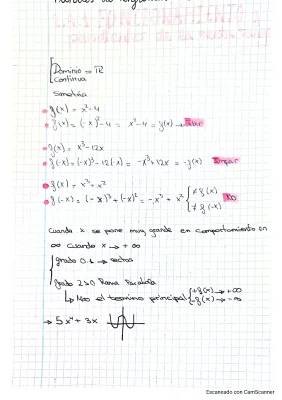 Dominio = ℝ
Continua
Simetría
f(x) = x² - 4
f(x) = (-x)² - 4 = x² - 4 = f(x) → Par
f(x) = x³ - 12x
f(-x) = (-x)³ - 12(-x) = -x³ + 12x = -f(x) Impar
f(x) = x³ + x²
f(-x) = (-x)³ + (-x)² = -x³ + x² { ≠ f(x)
≠ f(-x) No
Cuando x se pone muy grande en comportamiento en
∞ cuando x → + ∞
grado 0,1 → rectas
grado 2>0 Rama Parabólica
↳ Miro el termino principal { +f(x) → +∞
-f(x) → -∞
→ 5x⁴ + 3x
Escaneado con CamScanner